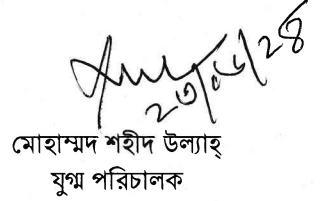 ২৩/০৬/২৪
মোহাম্মদ শহীদ উল্যাহ্
যুগ্ম পরিচালক